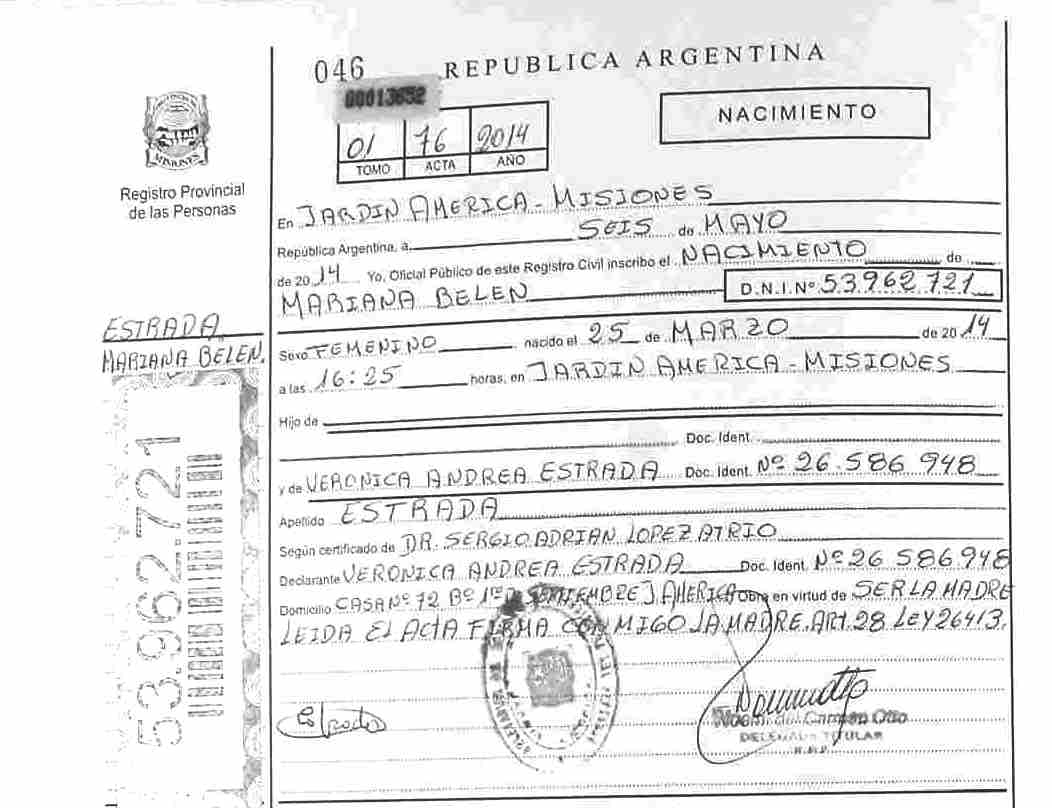 046 REPUBLICA ARGENTINA
00013652
NACIMIENTO
01 76 2014
TOMO ACTA AÑO
MISIONES
Registro Provincial
de las Personas
En JARDIN AMERICA - MISIONES
República Argentina, a SEIS de MAYO
de 2014 Yo, Oficial Público de este Registro Civil inscribo el NACIMIENTO de
MARIANA BELEN D.N.I.Nº 53.962.721
ESTRADA
MARIANA BELEN.
Sexo FEMENINO nacido el 25 de MARZO de 2014
a las 16:25 horas, en JARDIN AMERICA - MISIONES
Hijo de
Doc. Ident.
y de VERONICA ANDREA ESTRADA Doc. Ident. Nº 26.586.948
Apellido ESTRADA
Según certificado de DR. SERGIO ADRIAN LOPEZ ATRIO
Declarante VERONICA ANDREA ESTRADA Doc. Ident. Nº 26 586.948
Domicilio CASA Nº 72 Bº 1º D SEPTIEMBRE J. AMERICA Obra en virtud de SER LA MADRE
LEIDA EL ACTA FIRMA CONMIGO LA MADRE. ART. 28 LEY 26413.
53.962.721
Estrada
Noemi del Carmen Otto
DELEGADA TITULAR
R.P.P.